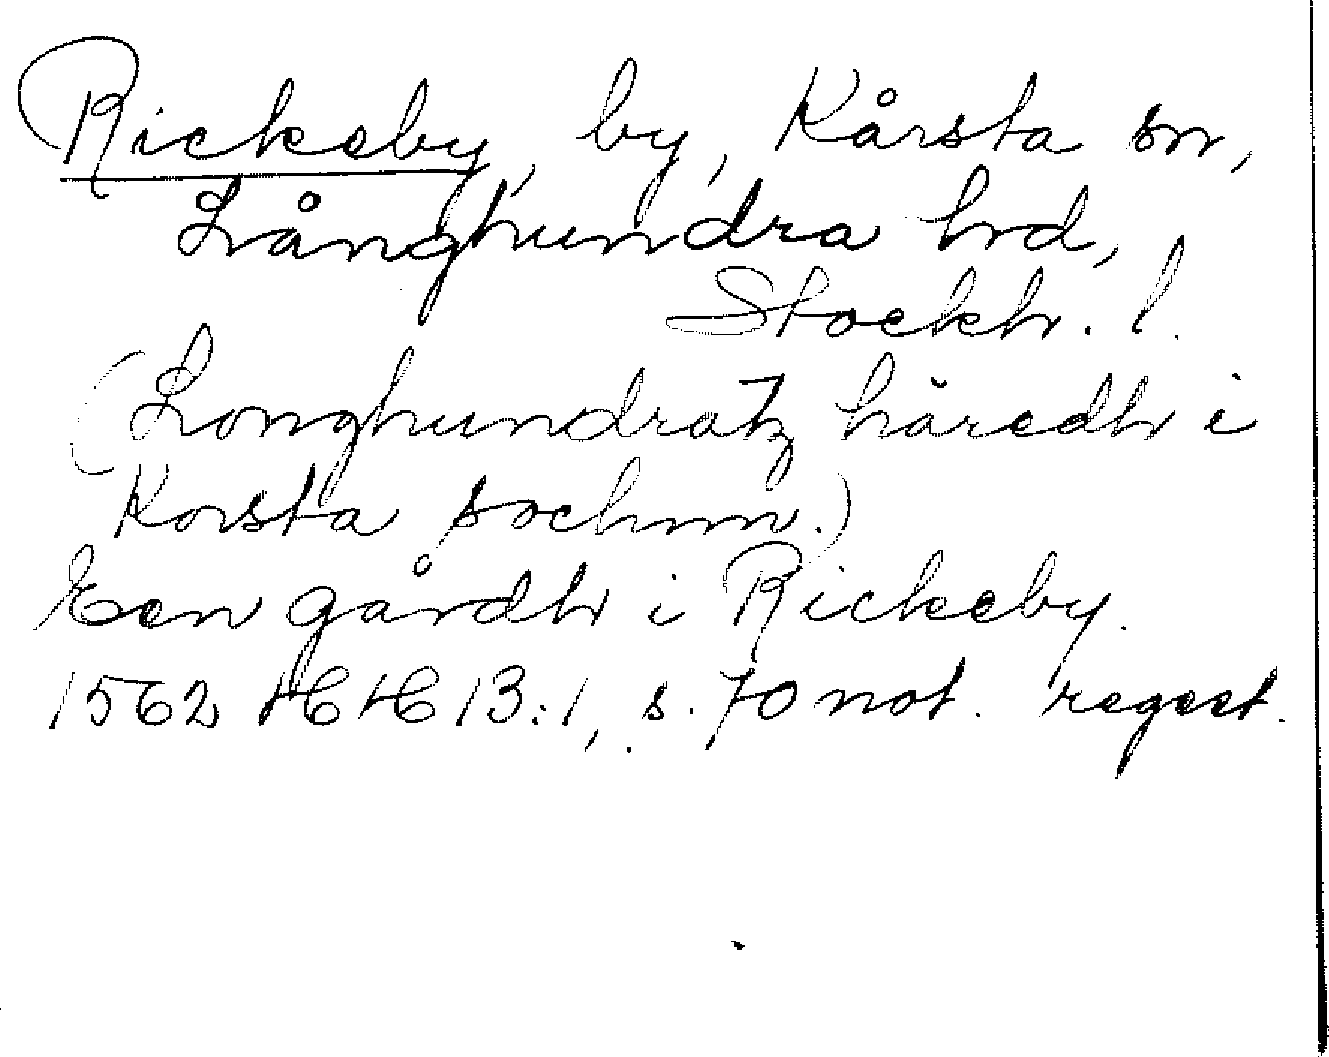 Rickeby, by, Kårsta sn,
Långhundra hd,
Stockh. l.
(Longhundratz häredh i
Korsta sochnn.)
Een gårdh i Rickeby.
1562 HH 13:1, s. 70 not. regest.